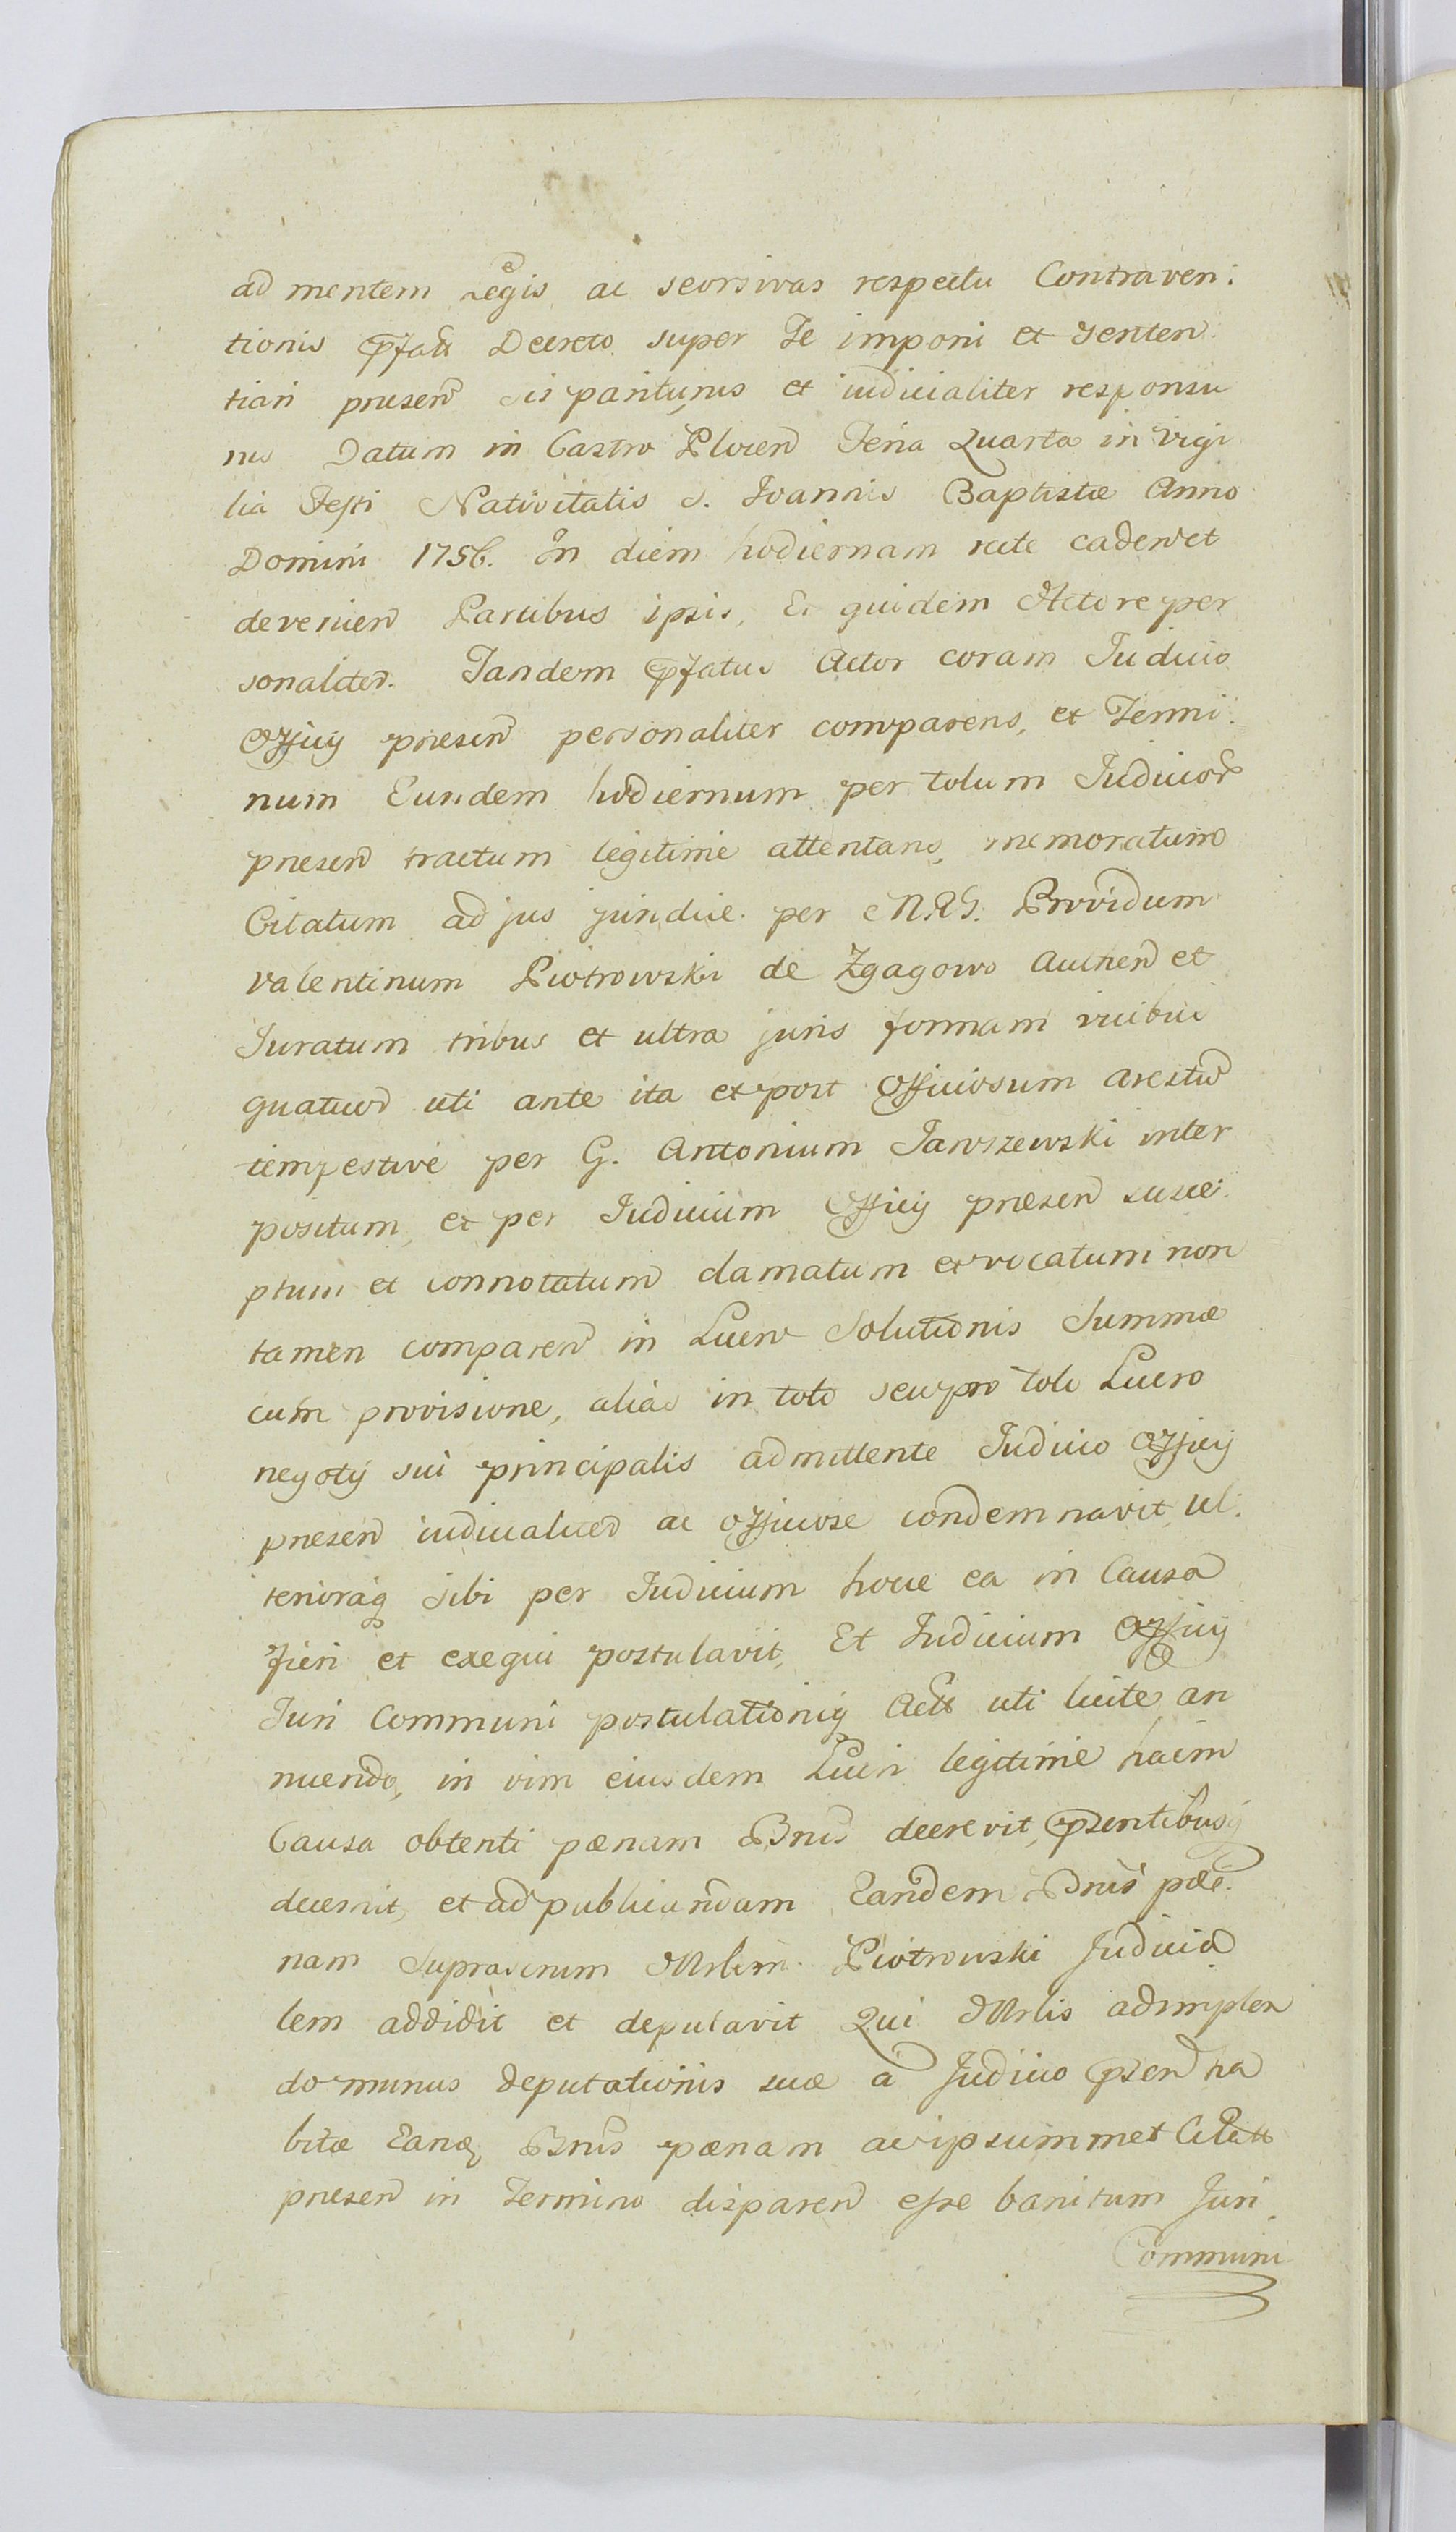 ad mentem Legis ac seorsivas respectu Contraven:
tionis pfati Decreto super Te imponi et senten
tiari presen sis pariturus et iudicialiter responsu
rus Datum in Castro Plocen Feria Quarta in vigi
lia Festi Nativitatis S. Joannis Baptistæ Anno
Domini 1756. In diem hodiernam recte caden et
devenien Partibus ipsis, Et quidem Actore per
sonaliter. Tandem pfatus Actor coram Judicio
Officij presen personaliter comparens, et Termi:
num Eundem hodiernum per totum Judicior
presen tractum legitime attentans, memoratum
Citatum ad jus juridice per M.R.G. Providum
Valentinum Piotrowski de Zgagowo Authen et
Juratum tribus et ultra juris formam vicibus
quatuor uti ante ita et post Officiosum arestum
tempestive per G. Antonium Jaroszewski inter
positum, et per Judicium Officij presen susce:
ptum et connotatum clamatum et vocatum non
tamen comparen in Lucro Solutionis Summæ
cum provisione, alias in toto seu pro toto Lucro
negotij sui principalis admittente Judicio Officij
presen iudicialiter ac officiose condemnavit, ul:
terioraq sibi per Judicium hocce ea in Causa
fieri et exequi postulavit, Et Judicium Officij
Juri Communi postulationiq Actt uti licite an
nuendo, in vim eiusdem Lucri legitime hacin
Causa obtenti pænam Bnis decrevit, psentibusq
decernit, et ad publicandam Eandem Bnis pæ:
nam Suprascrium Mrlem Piotrowski Judicia
lem addidit et deputavit Qui Mrlis adimplen
do munus deputationis suæ a Judicio psen ha
bitæ Eanq Bnis pænam ac ipsummet Citatt
presen in Termino disparen esse banitum Juri
Communi